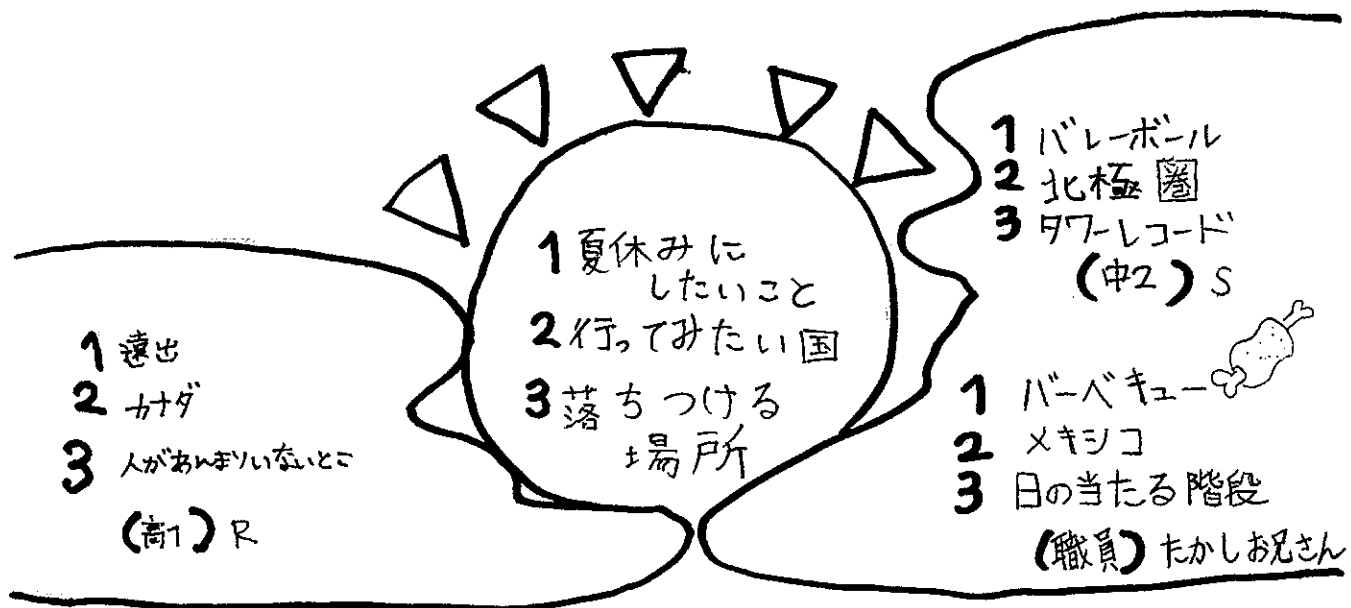 1 夏休みに
したいこと
2 行ってみたい国
3 落ちつける
場所
1 遠出
2 カナダ
3 人があんまりいないとこ
(高1) R
1 バレーボール
2 北極圏
3 タワーレコード
(中2) S
1 バーベキュー
2 メキシコ
3 日の当たる階段
(職員) たかしお兄さん